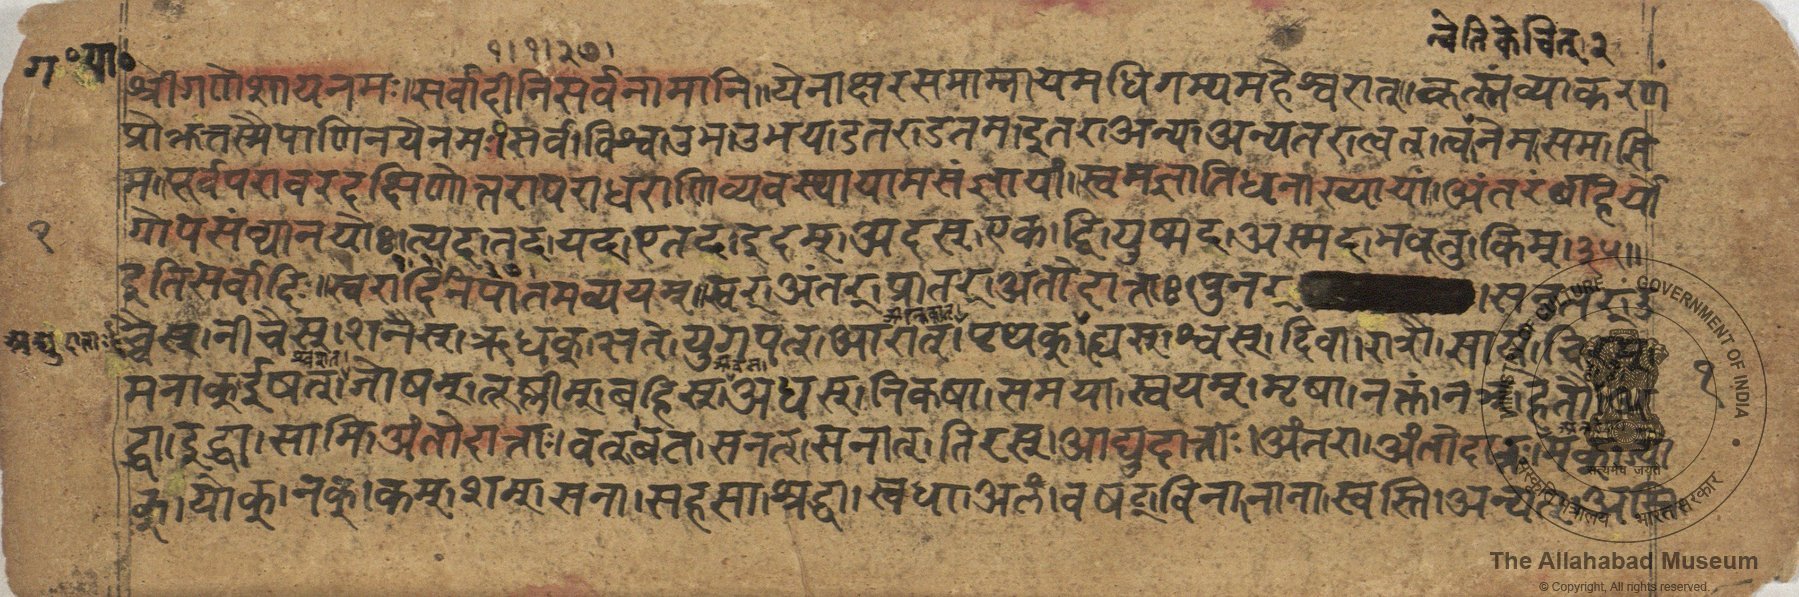 ग॰ पा॰
१।१।२७।
त्वेति केचित् २
श्रीगणेशायनमः॥सर्वादीनिसर्वनामानि॥येनाक्षरसमाम्नायमधिगम्यमहेश्वरात्।कृत्स्नंव्याकरणं
प्रोक्तंतस्मैपाणिनयेनमः॥सर्व।विश्व।उभ।उभय।डतर।डतम।इतर।अन्य।अन्यतर।त्वत्।त्व।नेम।सम।सि
म।पूर्वपरावरदक्षिणोत्तरापराधराणिव्यवस्थायामसंज्ञायां।स्वमज्ञातिधनाख्यायां।अंतरंबहिर्यो
गोपसंव्यानयोः॥त्यद्।तद्।यद्।एतद्।इदम्।अदस्।एक।द्वि।युष्मद्।अस्मद्।भवतु।किम्।३५॥
१
इतिसर्वादिः॥स्वरादिनिपातमव्ययम्॥स्वर्।अंतर्।प्रातर्।अंतोदात्ताः।पुनर्
आद्युदात्तः
च्चैस्।नीचैस्।शनैस्।ऋधक्।ऋते।युगपत्।आरात्।पृथक्।ह्यस्।श्वस्।दिवा।रात्रौ।सायं।
मनाक्।ईषत्।जोषम्।तूष्णीम्।बहिस्।अधस्।निकषा।समया।स्वयम्।मृषा।नक्तं।नञ्।हेतौ।
१
द्धा।इद्धा।सामि।अंतोदात्ताः।वत्।बत।सनत्।सनात्।तिरस्।आद्युदात्ताः।अंतरा।अंतोदात्तः।
क्।योक्।नक्।कम्।शम्।सना।सहसा।श्रद्धा।स्वधा।अलं।वषट्।विना।नाना।स्वस्ति।अन्यत्।अस्ति
MINISTRY OF CULTURE GOVERNMENT OF INDIA
सत्यमेव जयते
संस्कृति मंत्रालय भारत सरकार
The Allahabad Museum
© Copyright, All rights reserved.